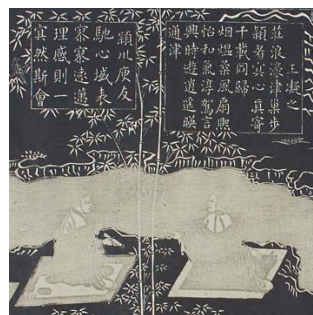 王凝之
莊浪濠津巢步
潁湄冥心真寄
千載同歸
烟熅柔風扇熙
怡和氣淳駕言
興時遊逍遙暎
通津
潁川庾友
馳心域表
寥寥遠邁
理感則一
冥然斯會